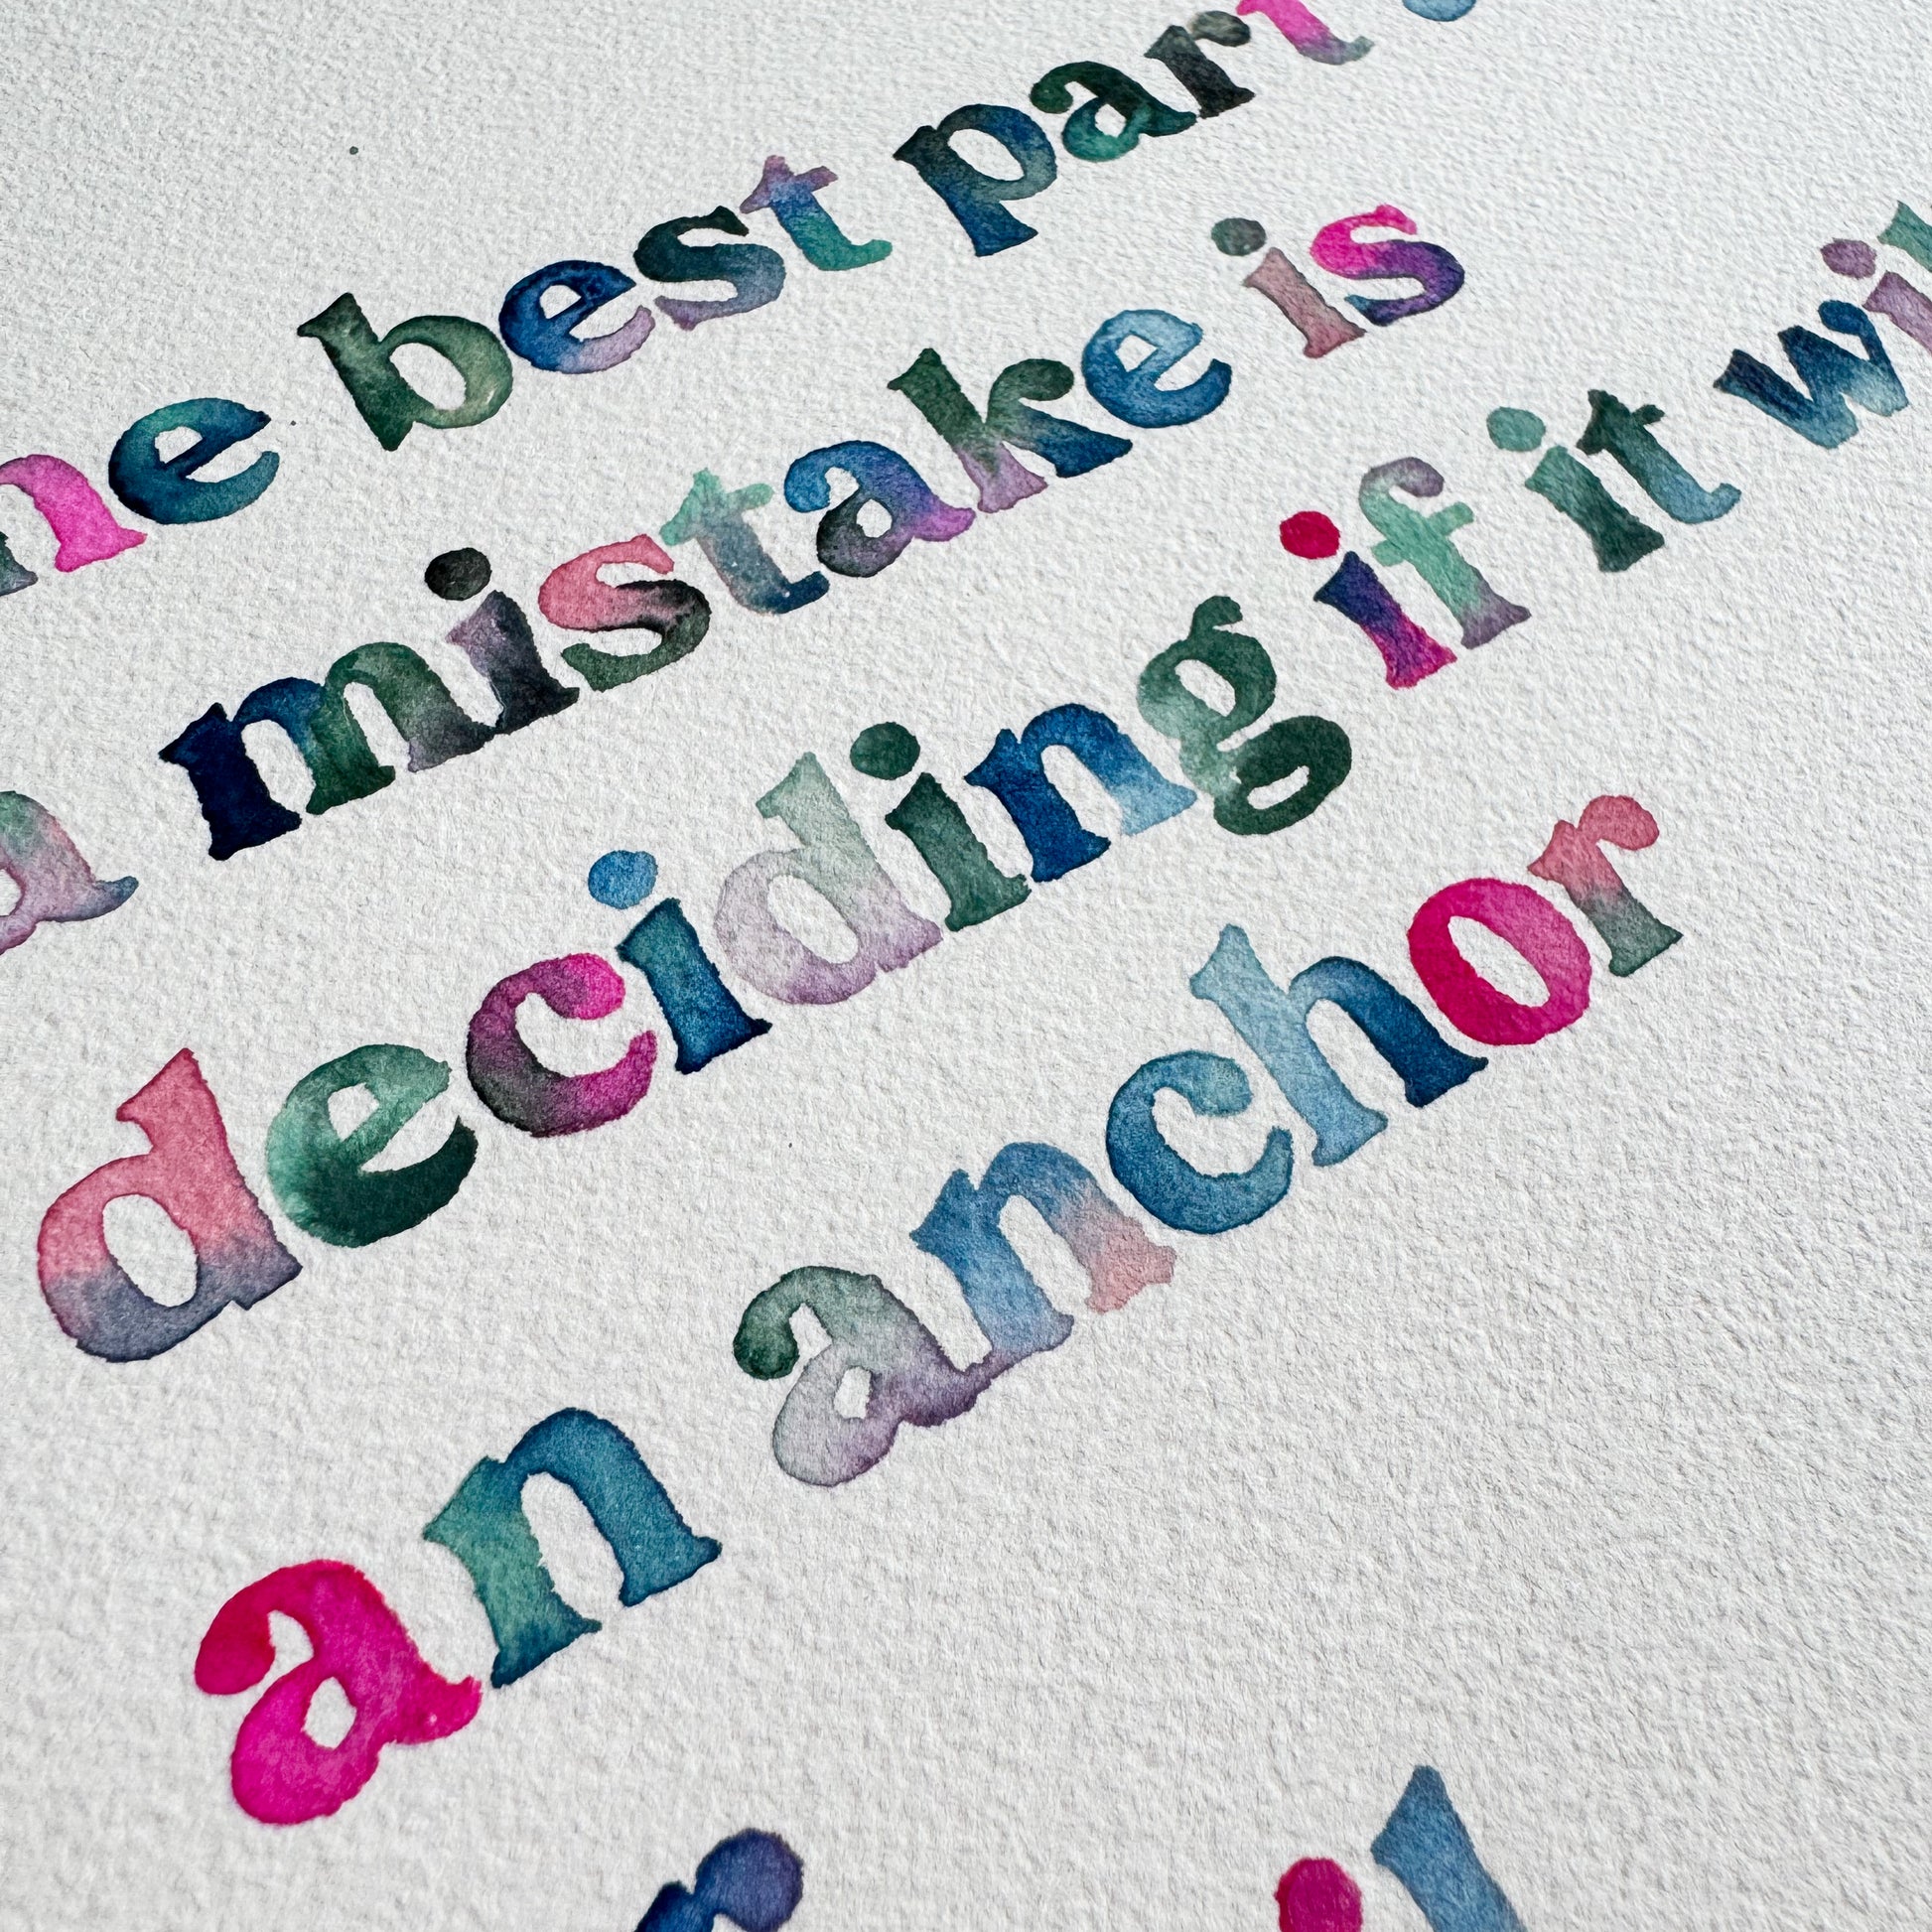 best part
a mistake is
deciding if it
an anchor